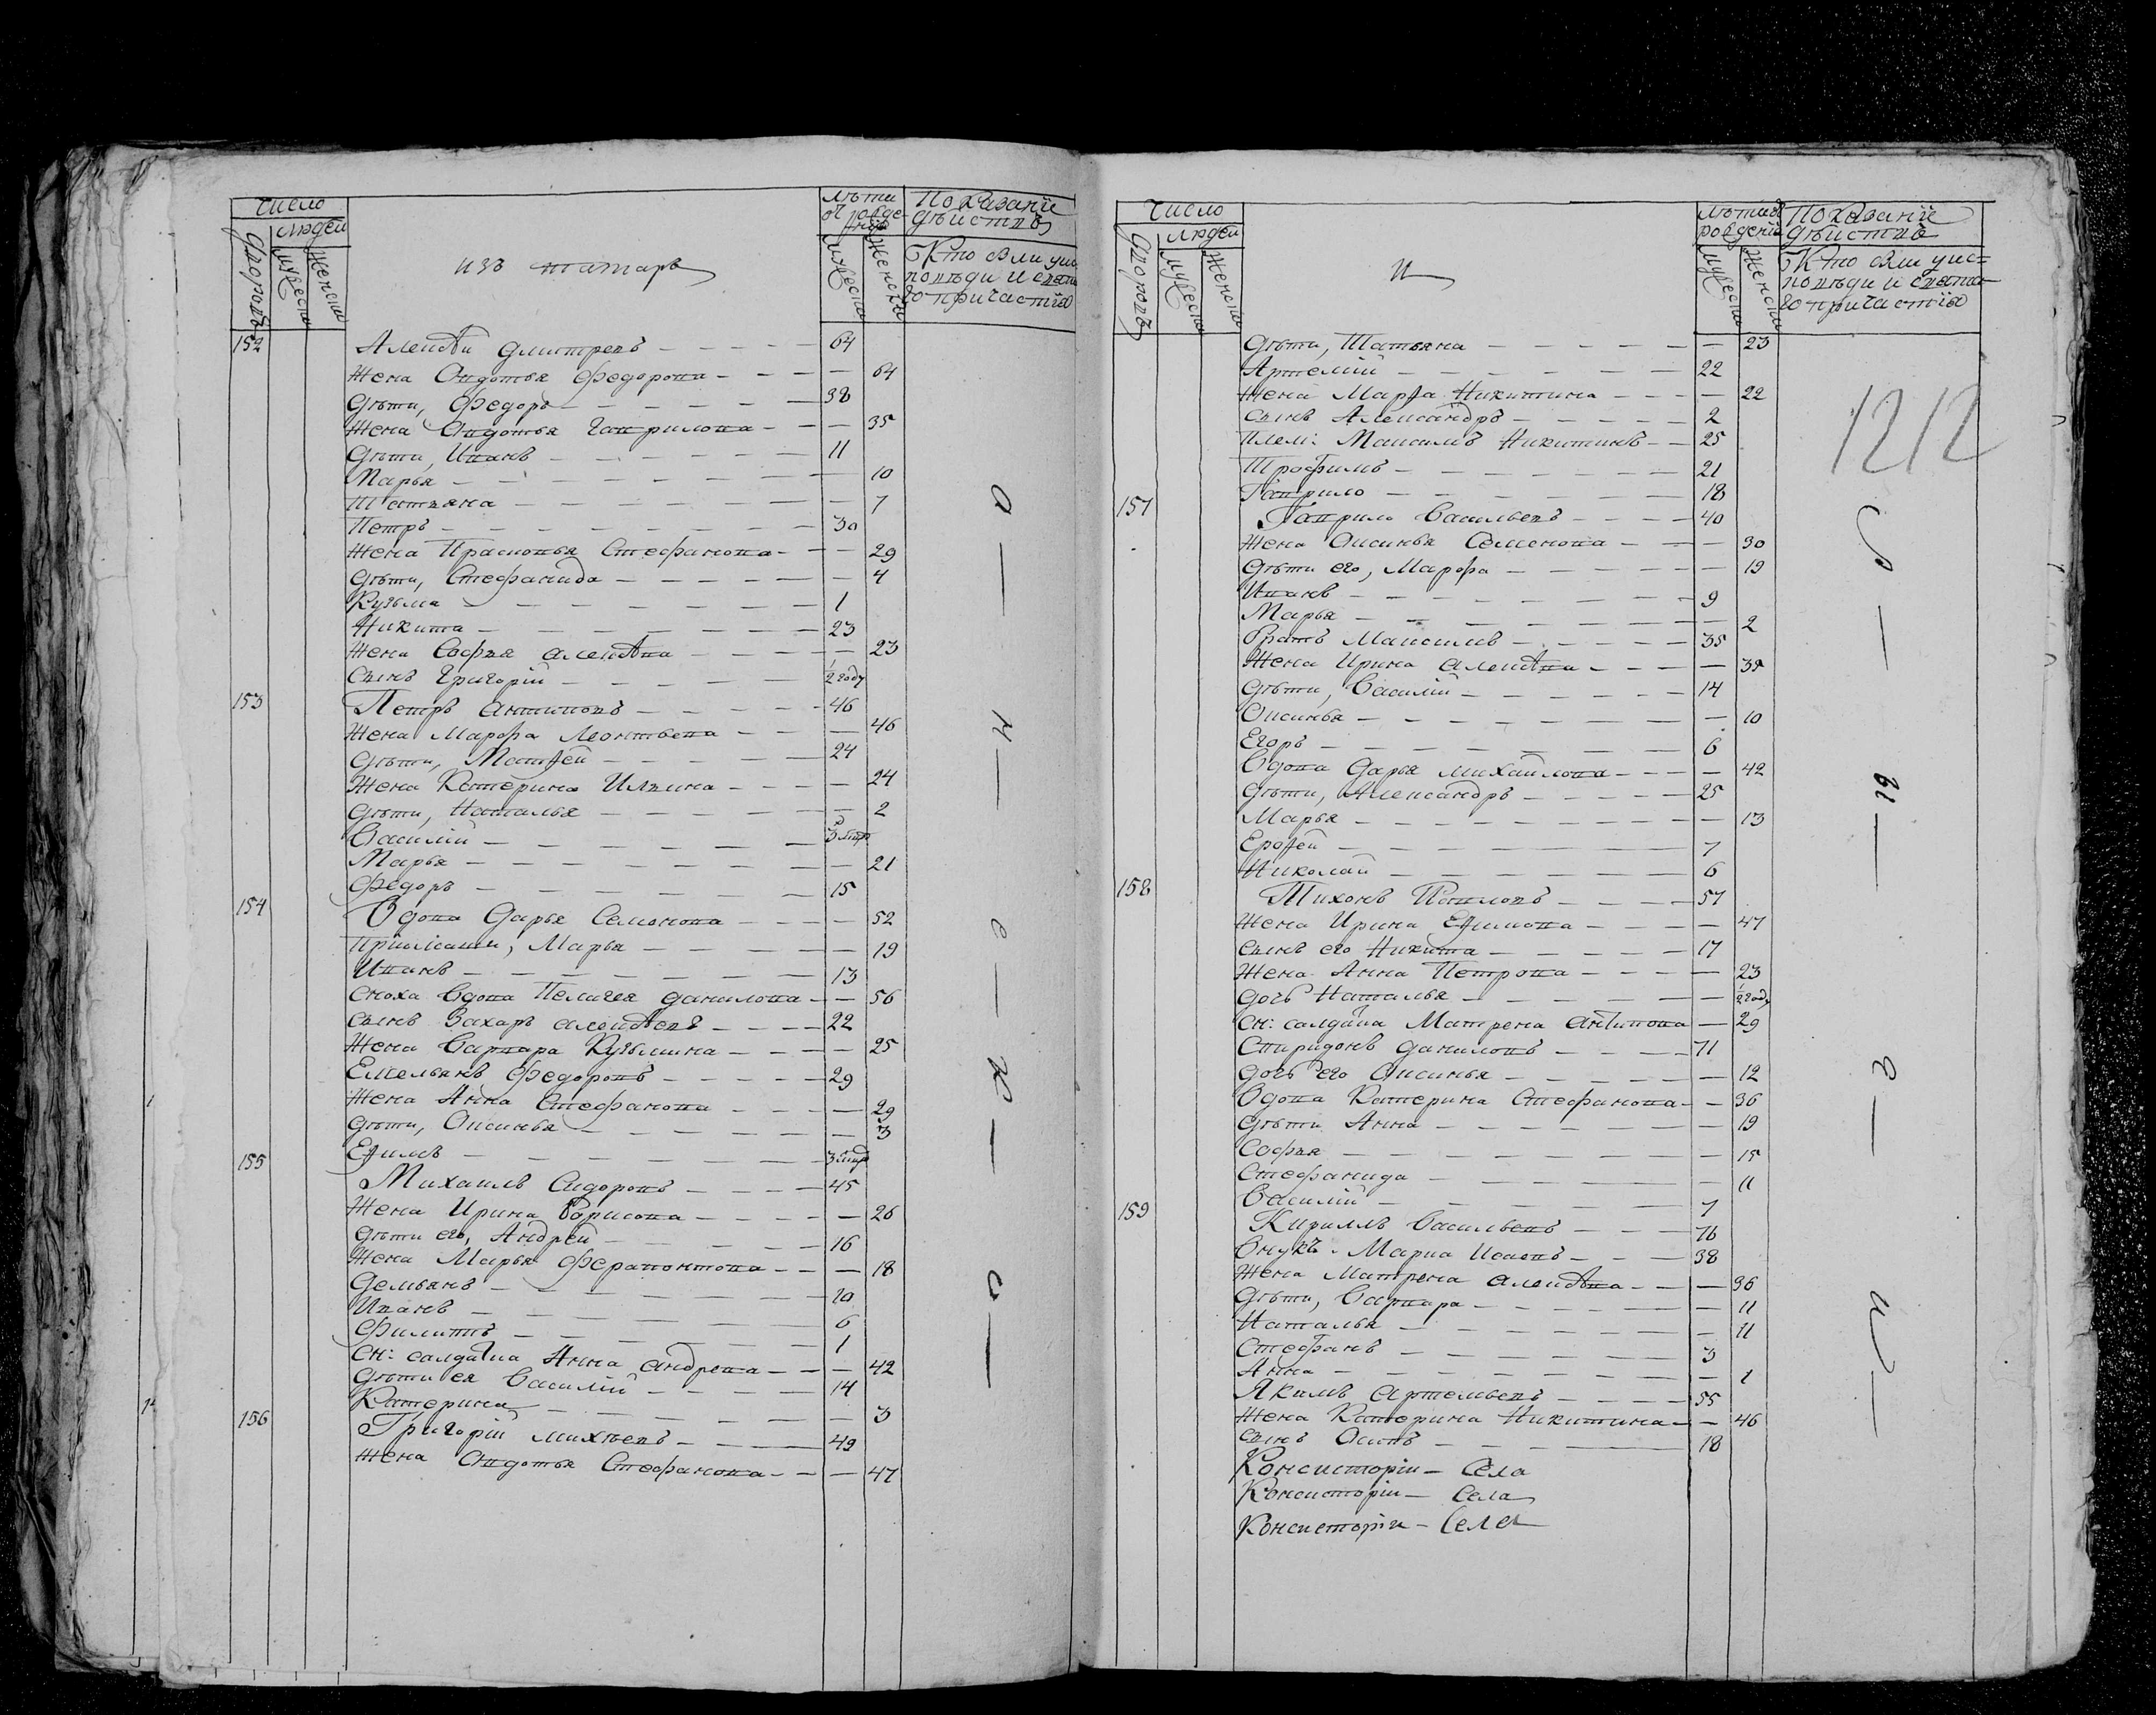 Число
людей
Дворовъ
Мужеска
Женска
изъ татаръ
Лѣта от рожденія
Мужеска
Женска
Показаніе дѣйствъ
Кто былъ у исповѣди и святаго причастія
152 Алексѣй Дмитревъ 64
Жена Авдотья Федорова 64
Дѣти, Федоръ 38
Жена Авдотья Гаврилова 35
Дѣти, Иванъ 11
Марья 10
Татьяна 7
Петръ 30
Жена Прасковья Стефанова 29
Дѣти, Стефанида 4
Кузьма 1
Никита 23
Жена Софья Алексѣва 23
Сынъ Григорій ½ году
153 Петръ Антиповъ 46
Жена Марфа Леонтьева 46
Дѣти, Матѳей 24
Жена Катерина Ильина 24
Дѣти, Наталья 2
Василій
Марья 21
Федоръ 15
154 Вдова Дарья Семенова 52
Приимыши, Марья 19
Иванъ 13
Сноха вдова Пелагея Данилова 56
Сынъ Захаръ Алексѣевъ 22
Жена Варвара Кузьмина 25
Емельянъ Федоровъ 29
Жена Анна Стефанова 29
Дѣти, Оксинья 3
Еѳимъ
155 Михаилъ Сидоровъ 45
Жена Ирина Борисова 26
Дѣти его, Андрей 16
Жена Марья Ферапонтова 18
Демьянъ 10
Иванъ 6
Филиппъ 1
Сн: салдатка Анна Андрева 42
Дѣти ея Василій 14
Катерина 3
156 Григорій Михѣевъ 49
Жена Авдотья Стефанова 47
о н е к о
Число
людей
Дворовъ
Мужеска
Женска
и
Лѣта от рожденій
Мужеска
Женска
Показаніе дѣйствъ
Кто былъ у исповѣди и святаго причастія
1212
Дѣти, Татьяна 23
Артемій 22
Жена Марѳа Никитина 22
Сынъ Александръ 2
Плем: Максимъ Никитинъ 25
Трофимъ 21
Гаврило 18
157 Гаврило Васильевъ 40
Жена Оксинья Семенова 30
Дѣти его, Марфа 19
Иванъ 9
Марья 2
Братъ Максимъ 35
Жена Ирина Алексѣва
Дѣти, Василій 14
Оксинья 10
Егоръ 6
Вдова Дарья Михайлова 42
Дѣти, Александръ 25
Марья 13
Ероѳей 7
Николай 6
158 Тихонъ Павловъ 57
Жена Ирина Еѳимова 47
Сынъ его Никита 17
Жена Анна Петрова 23
Дочь Наталья ½ году
Сн: салдатка Матрена Антипова 29
Спиридонъ Даниловъ 71
Дочь его Оксинья 12
Вдова Катерина Стефанова 36
Дѣти Анна 19
Софья 15
Стефанида 11
Василій 7
159 Кириллъ Васильевъ 76
Внукъ Марка Исаевъ 38
Жена Матрена Алексѣва 36
Дѣти, Варвара 11
Наталья 11
Стефанъ 3
Анна 1
Якимъ Артемьевъ 55
Жена Катерина Никитина 46
Сынъ Осипъ 18
Консисторіи Села
Консисторіи Села
Консисторіи Села